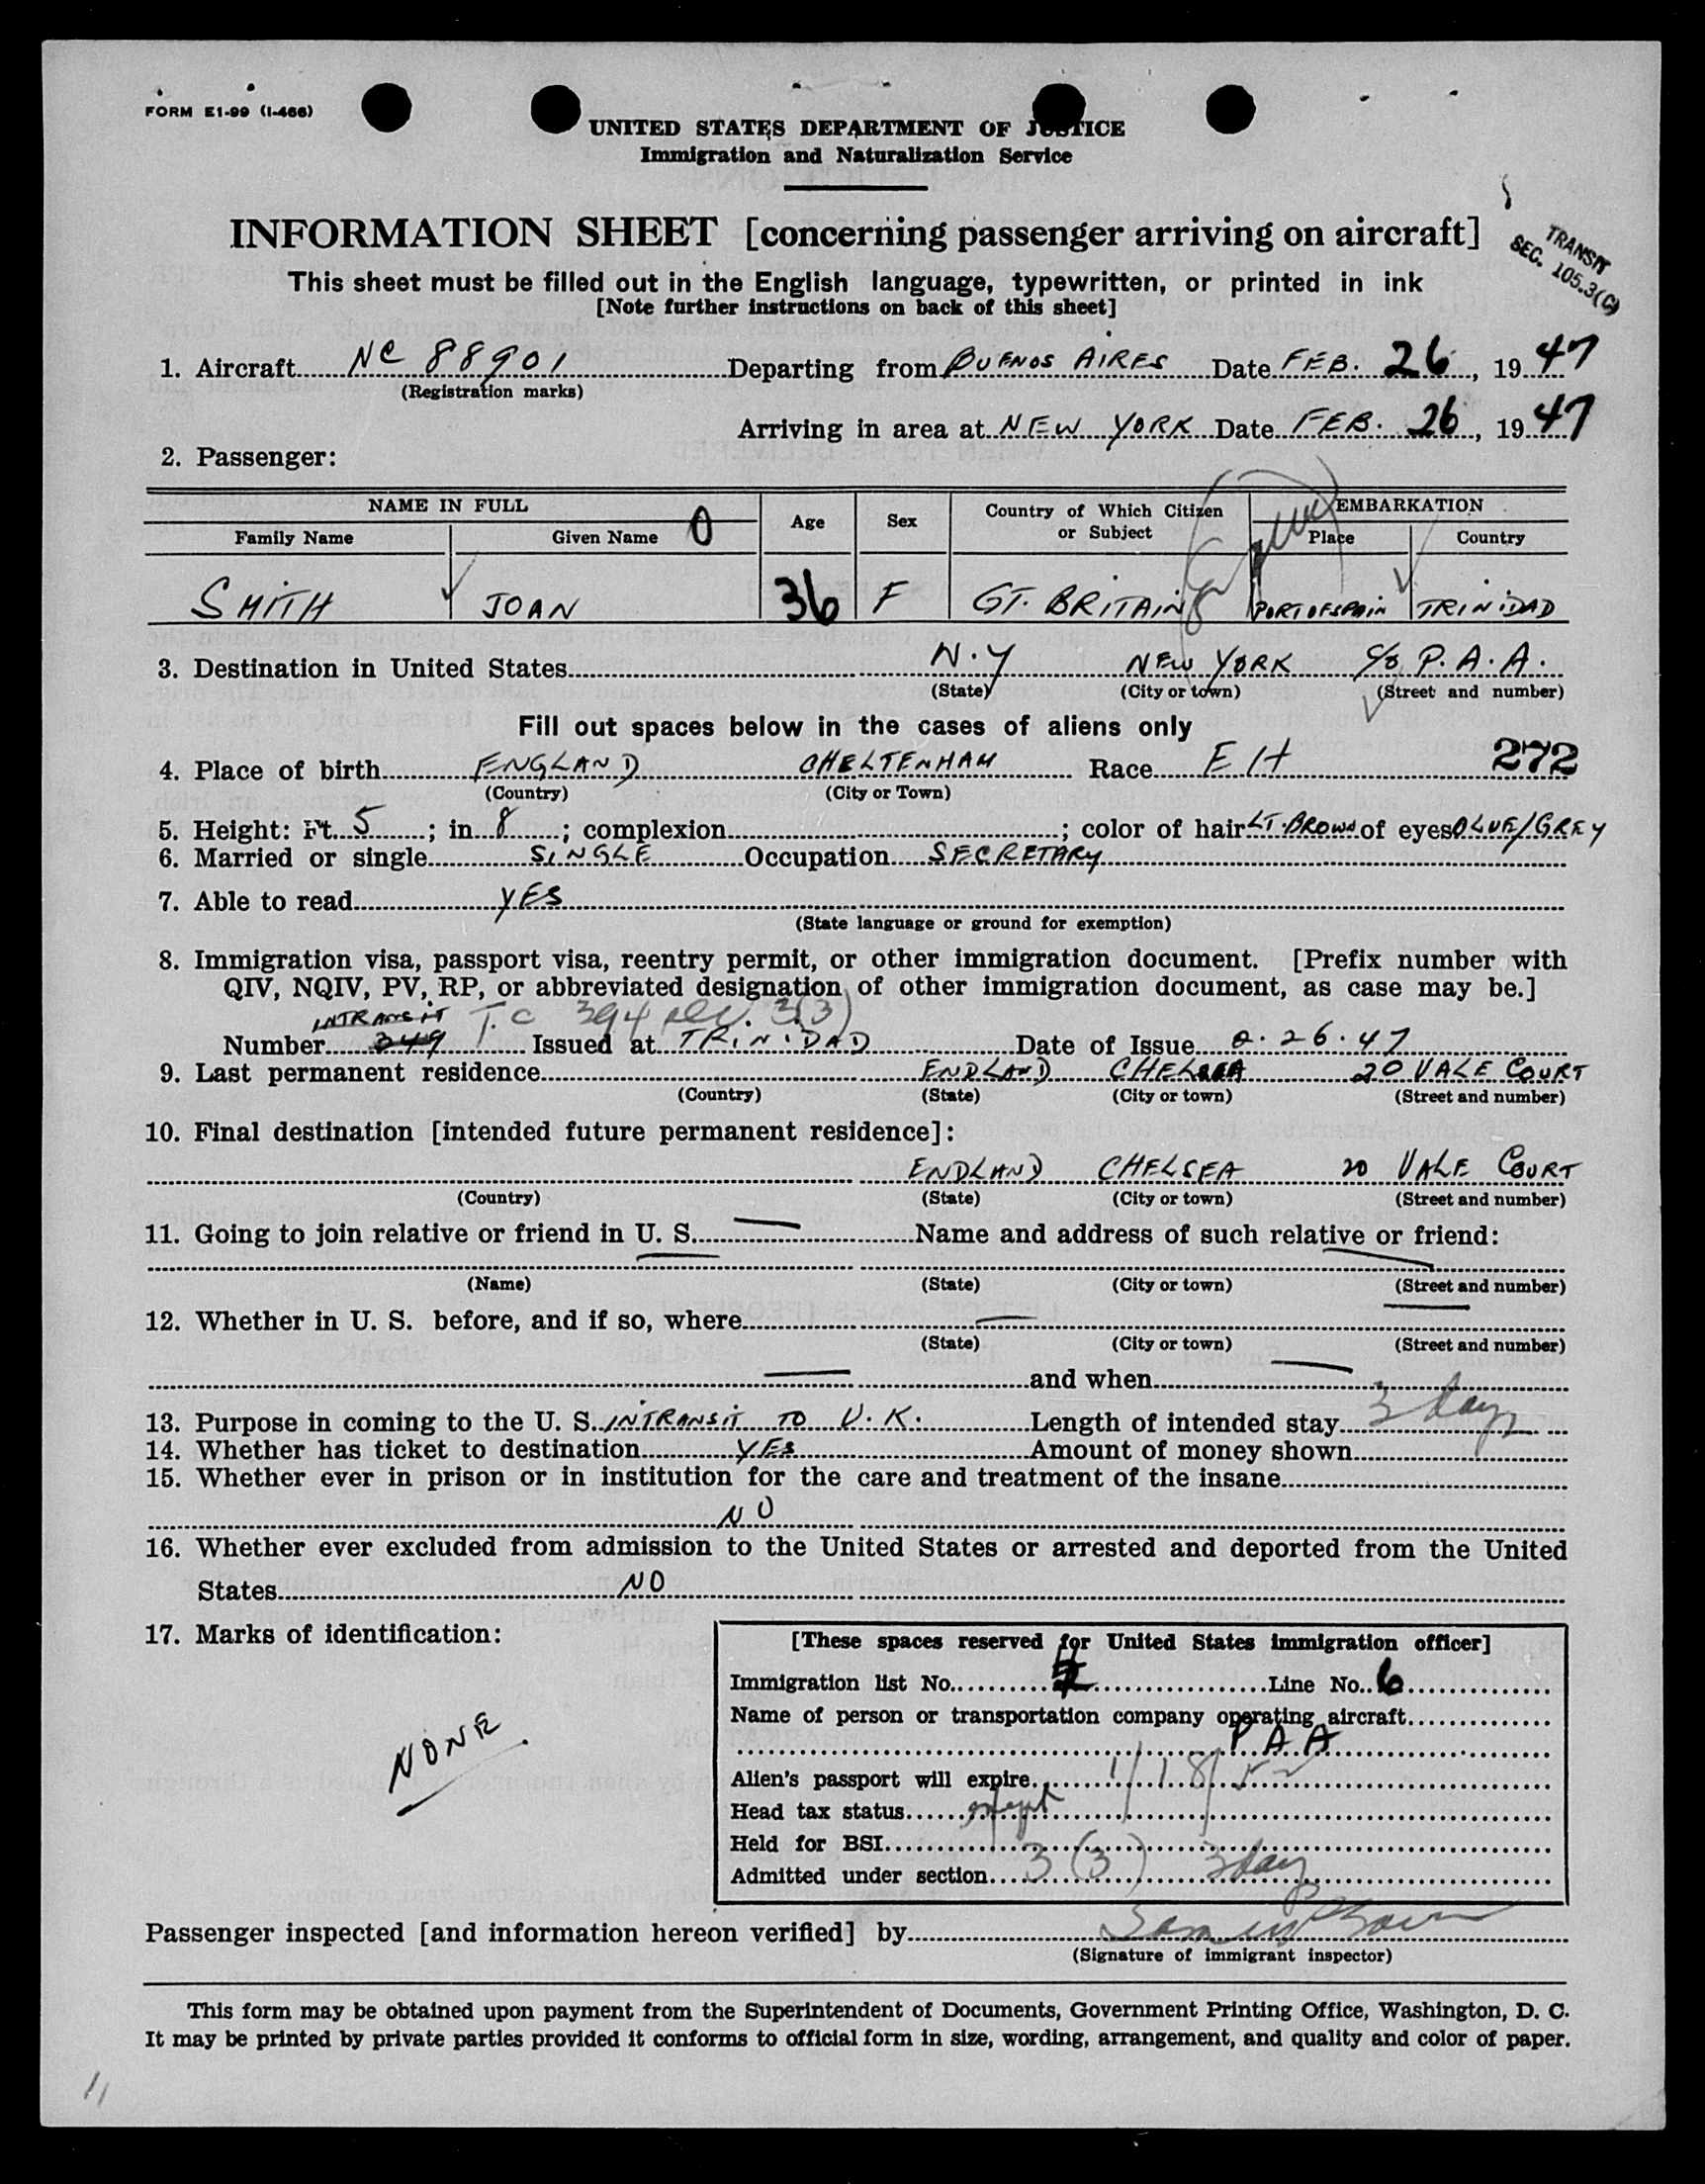 FORM E1-99 (I-466)
UNITED STATES DEPARTMENT OF JUSTICE
Immigration and Naturalization Service
INFORMATION SHEET [concerning passenger arriving on aircraft]
TRANSIT
SEC. 105.3(C)
This sheet must be filled out in the English language, typewritten, or printed in ink
[Note further instructions on back of this sheet]
1. Aircraft NC 88901 Departing from BUENOS AIRES Date FEB. 26, 1947
(Registration marks)
Arriving in area at NEW YORK Date FEB. 26, 1947
2. Passenger:
NAME IN FULL Age Sex Country of Which Citizen or Subject EMBARKATION
Family Name Given Name 0 Place Country
SMITH JOAN 36 F GT. BRITAIN PORT OF SPAIN TRINIDAD
3. Destination in United States N.Y NEW YORK C/O P.A.A.
(State) (City or town) (Street and number)
Fill out spaces below in the cases of aliens only
4. Place of birth ENGLAND CHELTENHAM Race E H 272
(Country) (City or Town)
5. Height: Ft. 5; in. 8; complexion; color of hair LT. BROWN of eyes BLUE/GREY
6. Married or single SINGLE Occupation SECRETARY
7. Able to read YES
(State language or ground for exemption)
8. Immigration visa, passport visa, reentry permit, or other immigration document. [Prefix number with
QIV, NQIV, PV, RP, or abbreviated designation of other immigration document, as case may be.]
INTRANSIT T.C 394 3(3)
Number 349 Issued at TRINIDAD Date of Issue 2.26.47
9. Last permanent residence ENDLAND CHELSEA 20 VALE COURT
(Country) (State) (City or town) (Street and number)
10. Final destination [intended future permanent residence]:
ENDLAND CHELSEA 20 VALE COURT
(Country) (State) (City or town) (Street and number)
11. Going to join relative or friend in U. S. — Name and address of such relative or friend:
(Name) (State) (City or town) (Street and number)
12. Whether in U. S. before, and if so, where —
(State) (City or town) (Street and number)
— and when —
13. Purpose in coming to the U. S. INTRANSIT TO U.K. Length of intended stay 3 days
14. Whether has ticket to destination YES Amount of money shown
15. Whether ever in prison or in institution for the care and treatment of the insane
NO
16. Whether ever excluded from admission to the United States or arrested and deported from the United
States NO
17. Marks of identification:
NONE
[These spaces reserved for United States immigration officer]
Immigration list No. Line No. 6
Name of person or transportation company operating aircraft
PAA
Alien's passport will expire 1/18/52
Head tax status
Held for BSI
Admitted under section 3(3) 3 day
Passenger inspected [and information hereon verified] by
(Signature of immigrant inspector)
This form may be obtained upon payment from the Superintendent of Documents, Government Printing Office, Washington, D. C.
It may be printed by private parties provided it conforms to official form in size, wording, arrangement, and quality and color of paper.
11